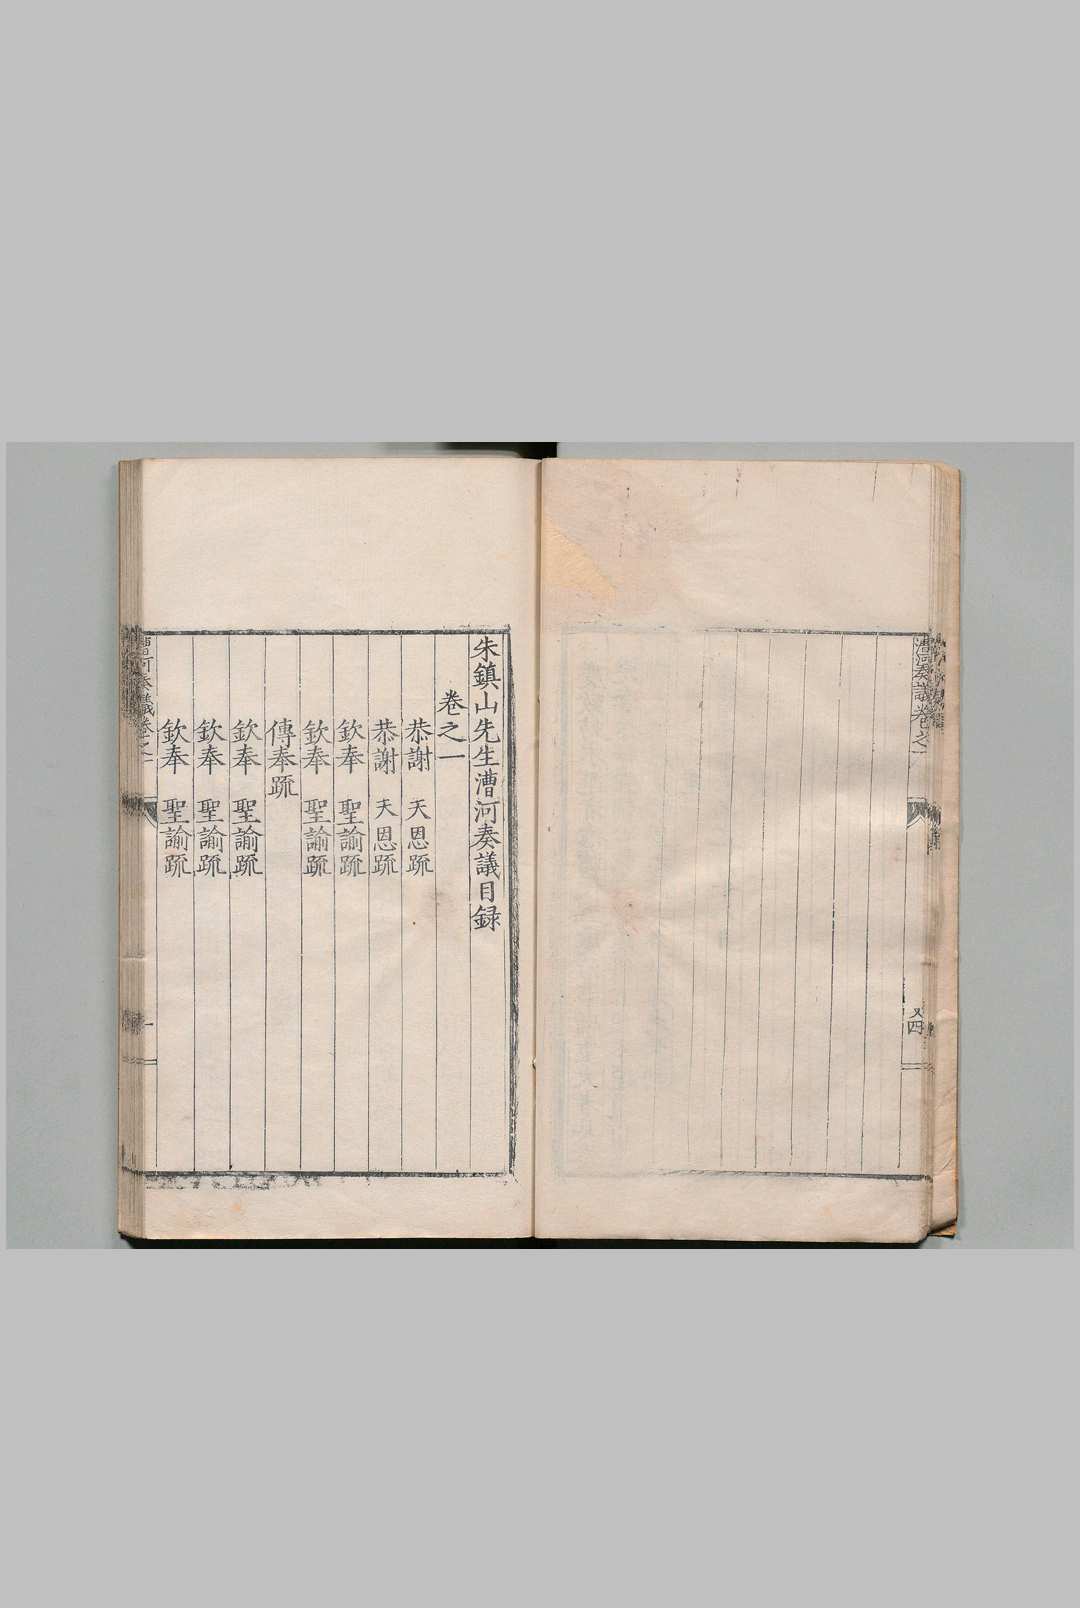 漕河奏議卷之一
又四
朱鎮山先生漕河奏議目録
卷之一
恭謝　天恩疏
恭謝　天恩疏
欽奉　聖諭疏
欽奉　聖諭疏
傳奉疏
欽奉　聖諭疏
欽奉　聖諭疏
欽奉　聖諭疏
漕河奏議卷之一
一